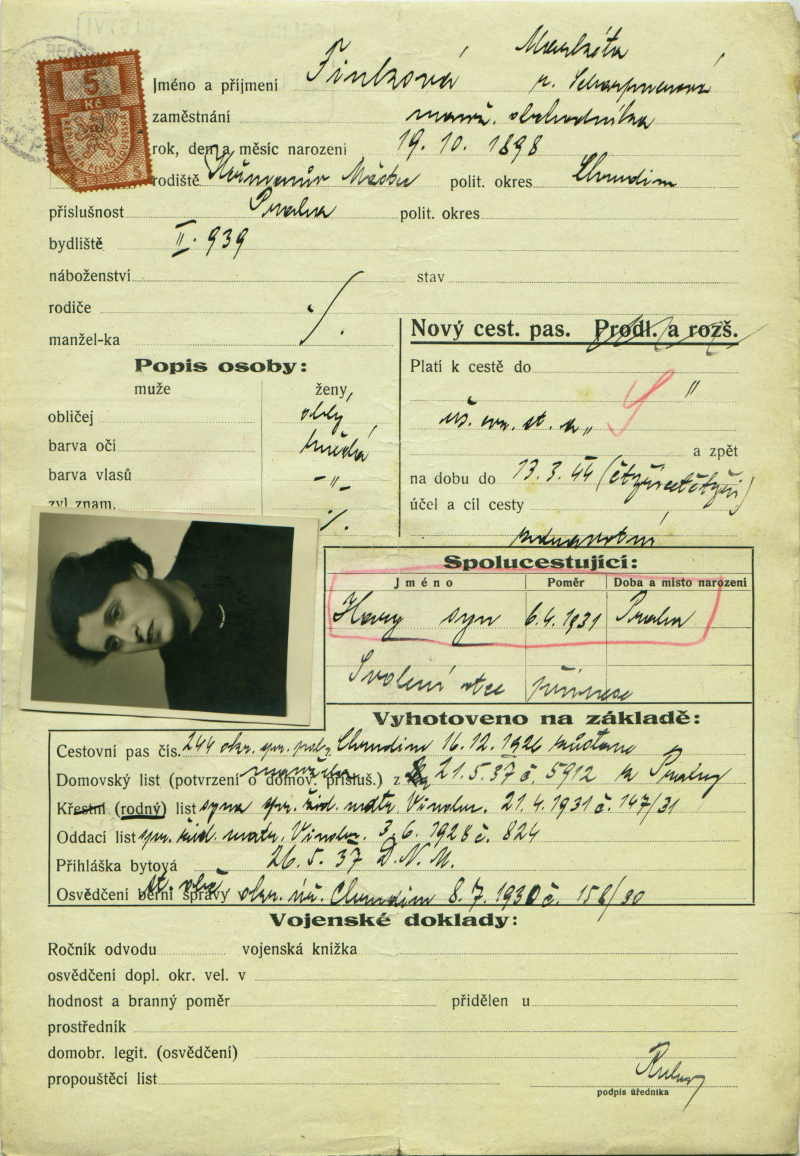 KOLEK
5
Kč
Jméno a příjmení Finková Markéta
r. Scharpnerová
zaměstnání manž. obchodníka
rok, den a měsíc narození 19. 10. 1898
rodiště Heřmanův Městec polit. okres Chrudim
příslušnost Praha polit. okres
bydliště II. 939
náboženství stav
rodiče
manžel-ka
Popis osoby:
muže ženy
obličej oblý
barva očí hnědá
barva vlasů -"-
zvl. znam.
Nový cest. pas. Prodl. a rozš.
Platí k cestě do
úš. evr. st. a „S"
a zpět
na dobu do 13. 3. 44 (čtyřicetčtyři)
účel a cíl cesty
Spolucestující:
Jméno Poměr Doba a místo narození
Harry syn 6. 4. 1931 Praha
Svolení otce přinese
Vyhotoveno na základě:
Cestovní pas čís. 244 okr. spr. pol. Chrudim 16. 12. 1926
Domovský list (potvrzení o domov. přísluš.) z manžela 21. 5. 37 č. 5912 Prahy
Křestní (rodný) list syna spr. žid. matr. Vinohr. 21. 4. 1931 č. 147/31
Oddací list spr. žid. matr. Vinohr. 3. 6. 1928 č. 824
Přihláška bytová 26. 5. 37 D. N. M.
Osvědčení berní správy st. obč. okr. úř. Chrudim 8. 7. 1930 č. 158/30
Vojenské doklady:
Ročník odvodu vojenská knížka
osvědčení dopl. okr. vel. v
hodnost a branný poměr přidělen u
prostředník
domobr. legit. (osvědčení)
propouštěcí list
podpis úředníka